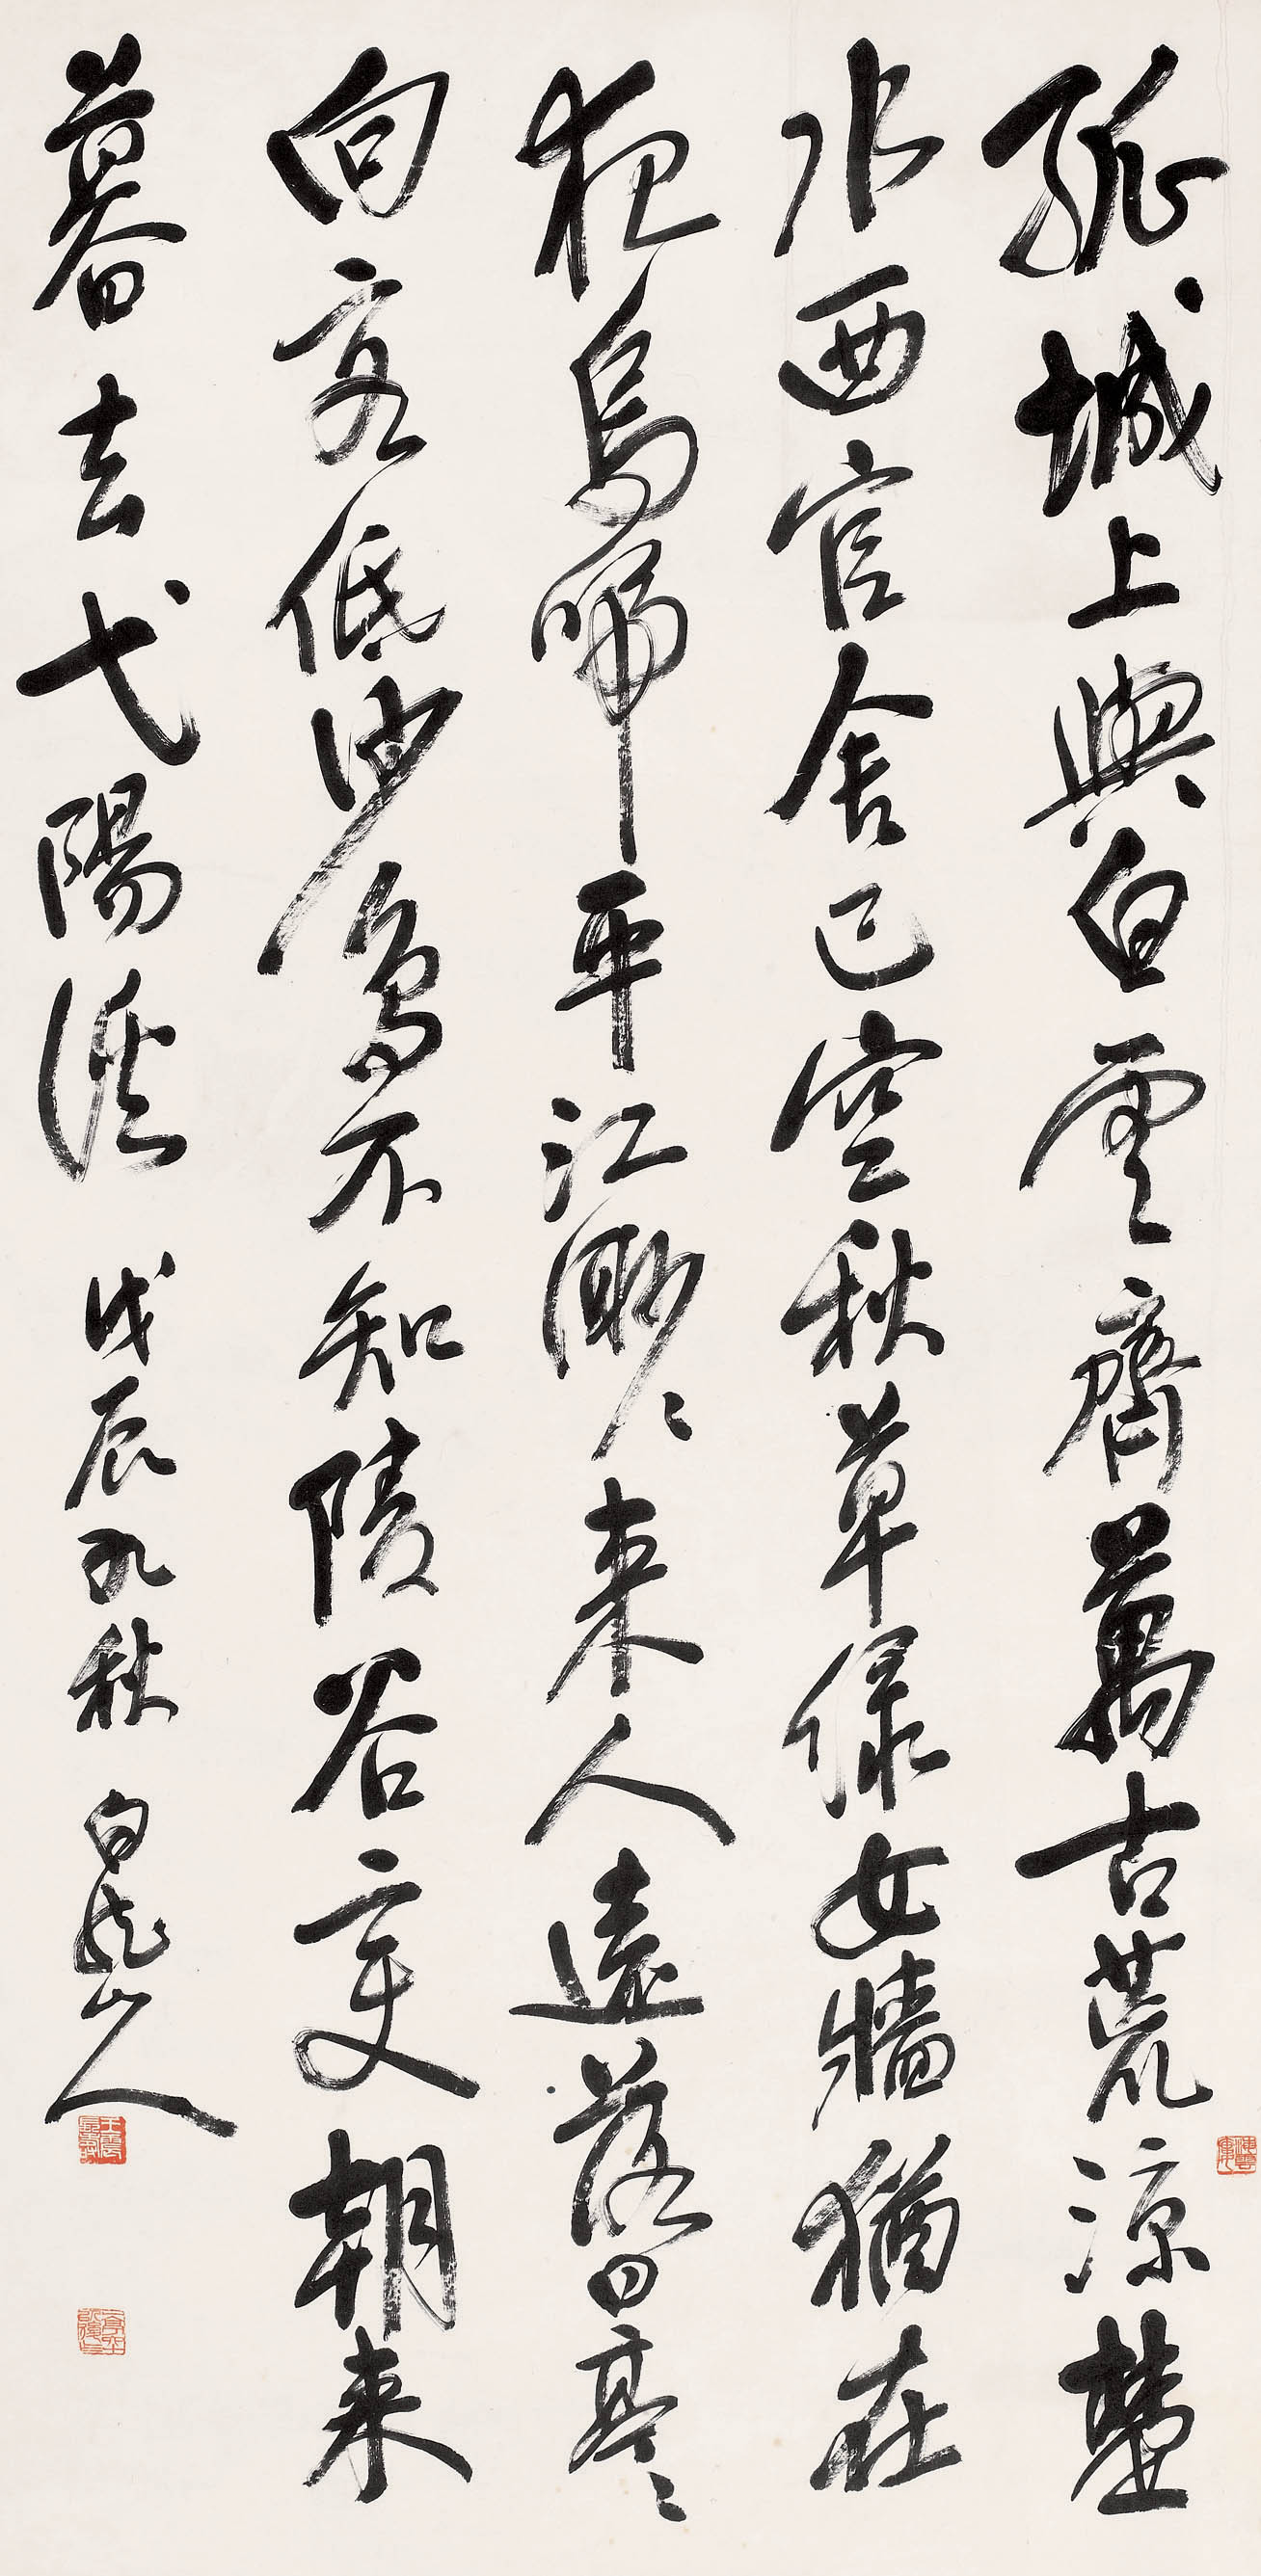 孤城上與白雲齊萬古荒涼楚
水西官舍已空秋草綠女牆猶在
夜烏啼平江渺〻来人遠落日亭〻
向客低沙鳥不知陵谷變朝来
暮去弋陽溪 戊辰九秋 白龍山人